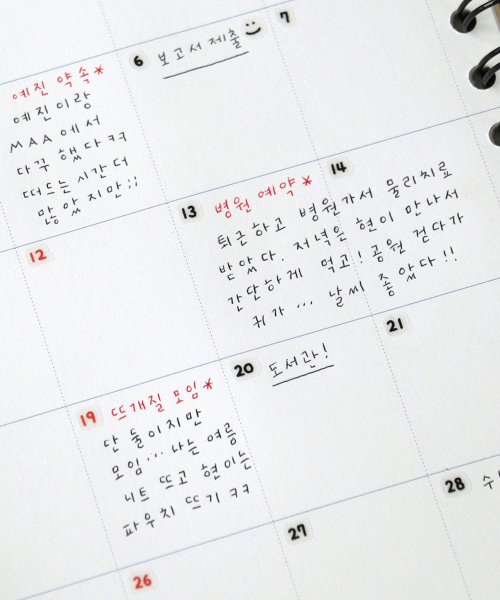 예진 약속*
예진이랑
MAA에서
다꾸 했다ㅋㅋ
떠드는 시간 더
많았지만;;
6 보고서 제출
7
12
13 병원 예약*
퇴근하고 병원가서 물리치료
받았다. 저녁은 현이 만나서
간단하게 먹고! 공원 걷다가
귀가... 날씨 좋았다!!
14
19 뜨개질 모임*
단 둘이지만
모임... 나는 여름
니트 뜨고 현이는
파우치 뜨기 ㅋㅋ
20 도서관!
21
26
27
28